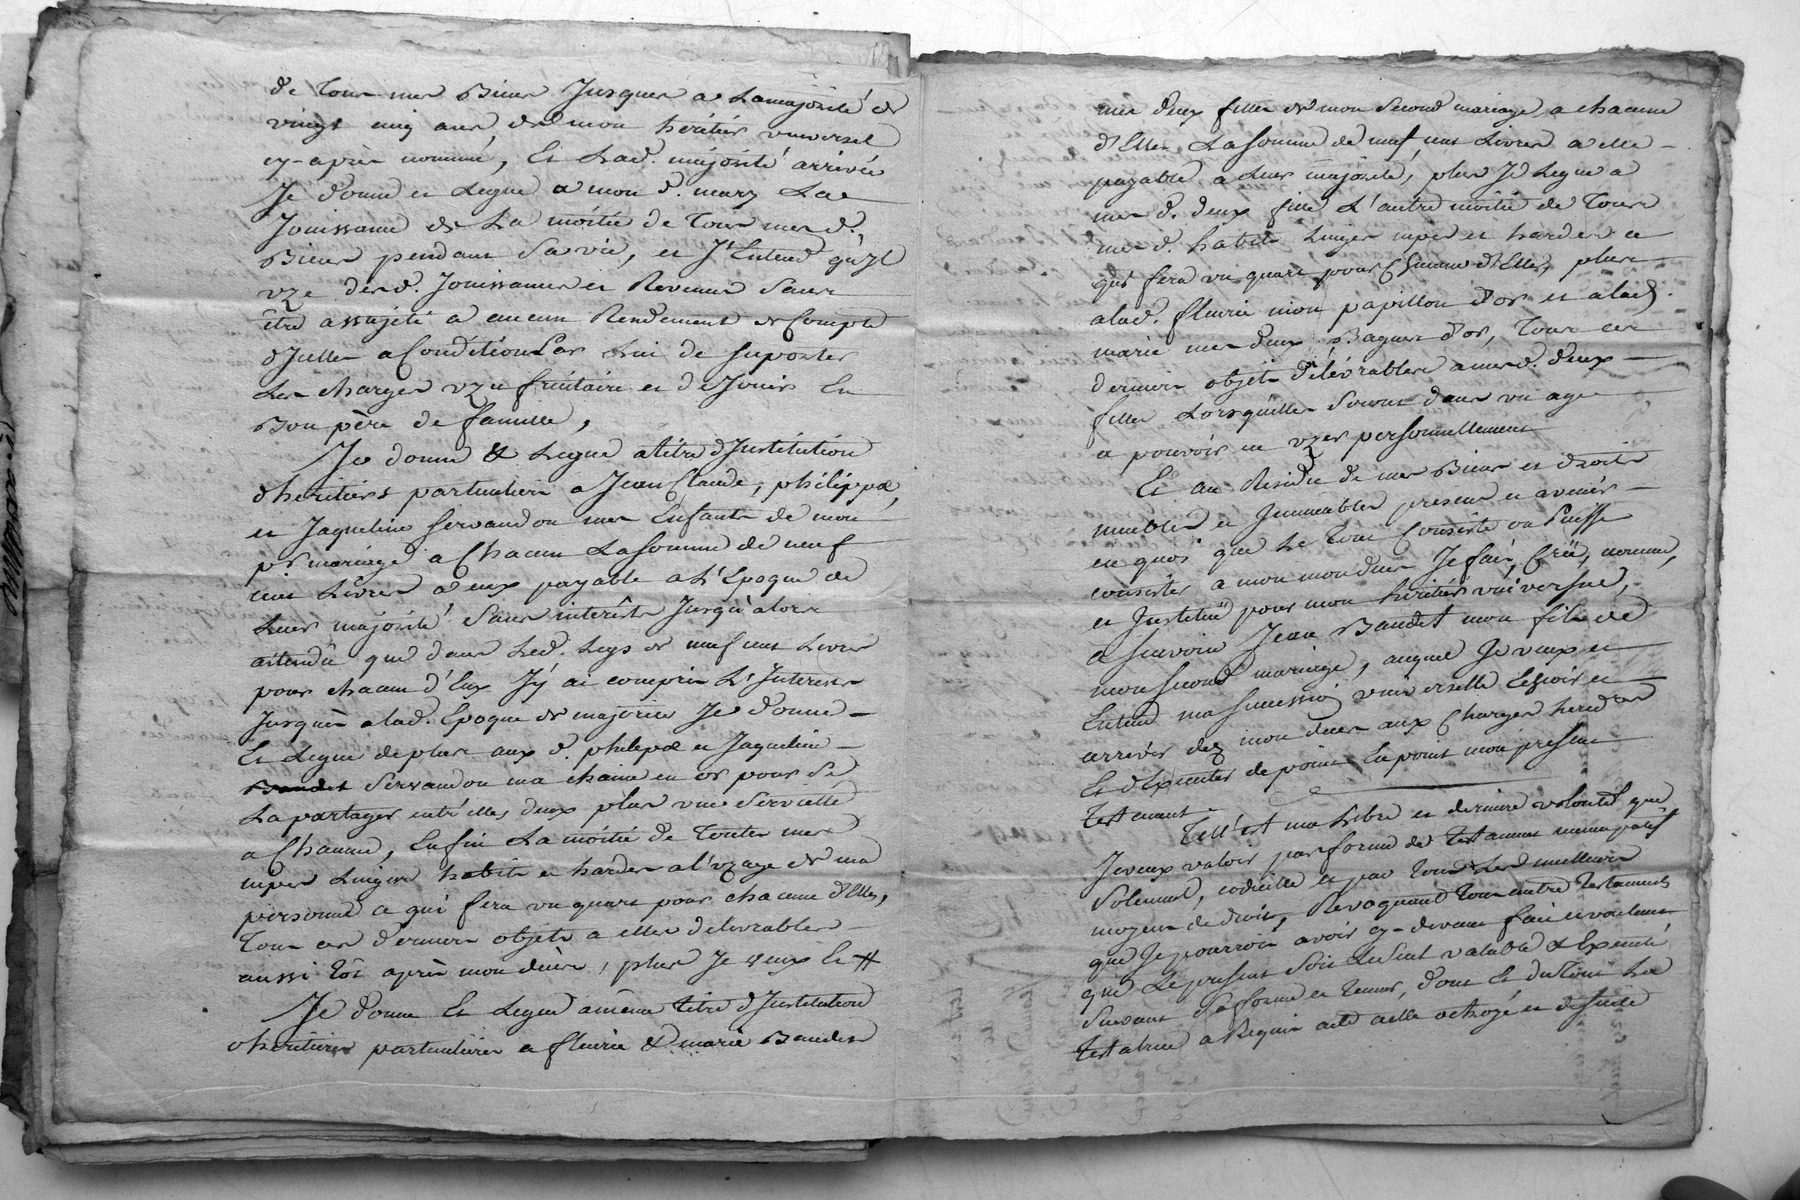 de tous mes Biens Jusques a La majorité de
vingt cinq ans de mon héritier universel
cy-après nommé, Et Lad. majorité arrivée
Je donne et Legue a mon d. mary La
Jouissance de La moitié de tous mes d.
Biens pendant Sa vie, et J'Entend qu'Jl
uze des d. Jouissances et Revenus Sans
être assujeté a aucun Rendement de Compte
d'Jcelles a Condition Par Lui de suporter
Les charges uzufruitaire et de Jouir En
Bon père de famille,
Je donne & Legue a titre d'Jnstitution
d'heritiers particuliers a Jean Claude, philippe,
et Jaqueline Servandon mes Enfants de mon
pr mariage a Chacun La Somme de neuf
cent Livres a eux payable a L'Epoque de
Leur majorité Sans interêts Jusqu'alors
attendû que dans Led. Legs de neuf cent Livres
pour chacun d'Eux J'y ai compris L'Interest
Jusques a lad. Epoque de majorité Je donne
Et Legue de plus aux d. philippe et Jaqueline
Servandon ma chaine en or pour Se
La partager entr'elles deux plus une Serviette
a Chacune, Enfin La moitié de toutes mes
nipes Linges habits et hardes a l'uzage de ma
personne ce qui fera un quart pour chacune d'Elles,
tous ces derniers objets a elles delivrables
aussi tôt après mon décès, plus Je veux Et #
Je donne Et Legue a même titre d'Jnstitution
d'héritières particulières a fleurie & marie Baudet
mes deux filles de mon Second mariage, a chacune
d'Elles La Somme de neuf cent Livres a elle
payable a Leur majorité, plus Je Legue a
mes d. deux filles L'autre moitié de tous
mes d. habits Linges nipes et hardes ce
qui fera un quart pour Chacune d'Elles, plus
a lad. fleurie mon papillon d'or et a lad.
marie mes deux Bagues d'or, tous ces
derniers objets délivrables a mes d. deux
filles Lorsqu'elles Seront dans un age
a pouvoir en uzer personnellement
Et au Residu de mes Biens et droits
meubles et Jmmeubles presens et avenir
en quoi que Le tout Consiste ou Puisse
consister a mon mon deces Je fais, Crée, nomme,
et Jnstitue pour mon héritier universel,
a Sçavoir Jean Baudet mon fils de
mon Second mariage, auquel Je veux et
Entend ma Succession universelle Echoir et
arriver dez mon deces aux Charges heredres
Et d'Executer de point En point mon present
testament
Tell'est ma Libre et derniere volonté que
Je veux valoir par forme de testament nuncupatif
Solemnel, codicille et par tous Les meilleurs
moyens de droit, Revoquant tous autre testaments
que Je pourrois avoir cy-devant fait et voulant
que Le present Soit Le Seul valable & Executé
Suivant Sa forme et teneur, dont Et du tout La
testatrice a Requis acte a elle octroyé et de Suite